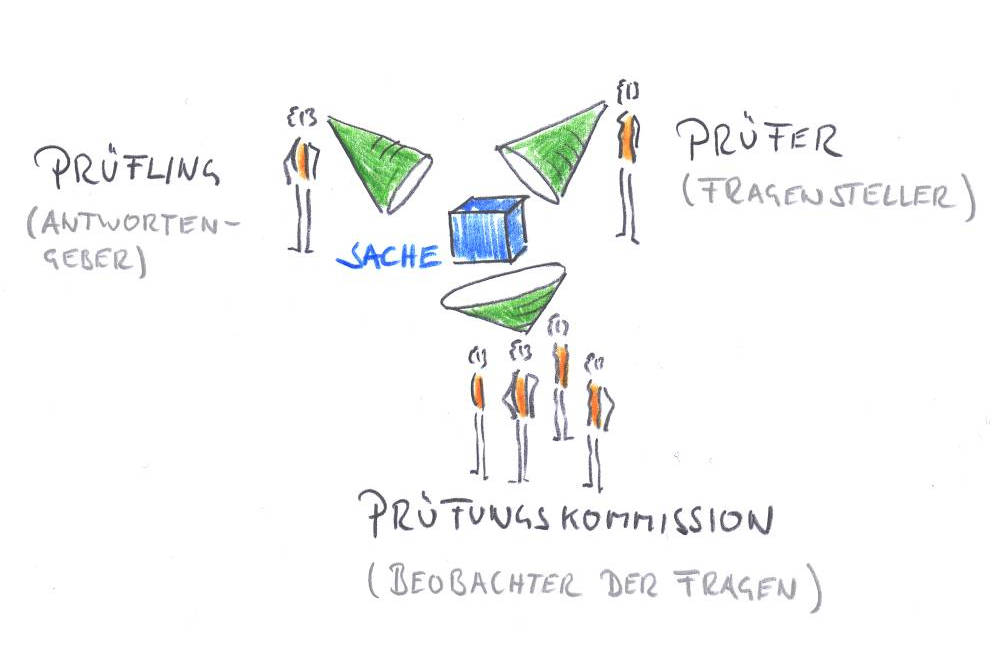 PRÜFLING
(ANTWORTEN-
GEBER)
PRÜFER
(FRAGENSTELLER)
SACHE
PRÜFUNGSKOMMISSION
(BEOBACHTER DER FRAGEN)